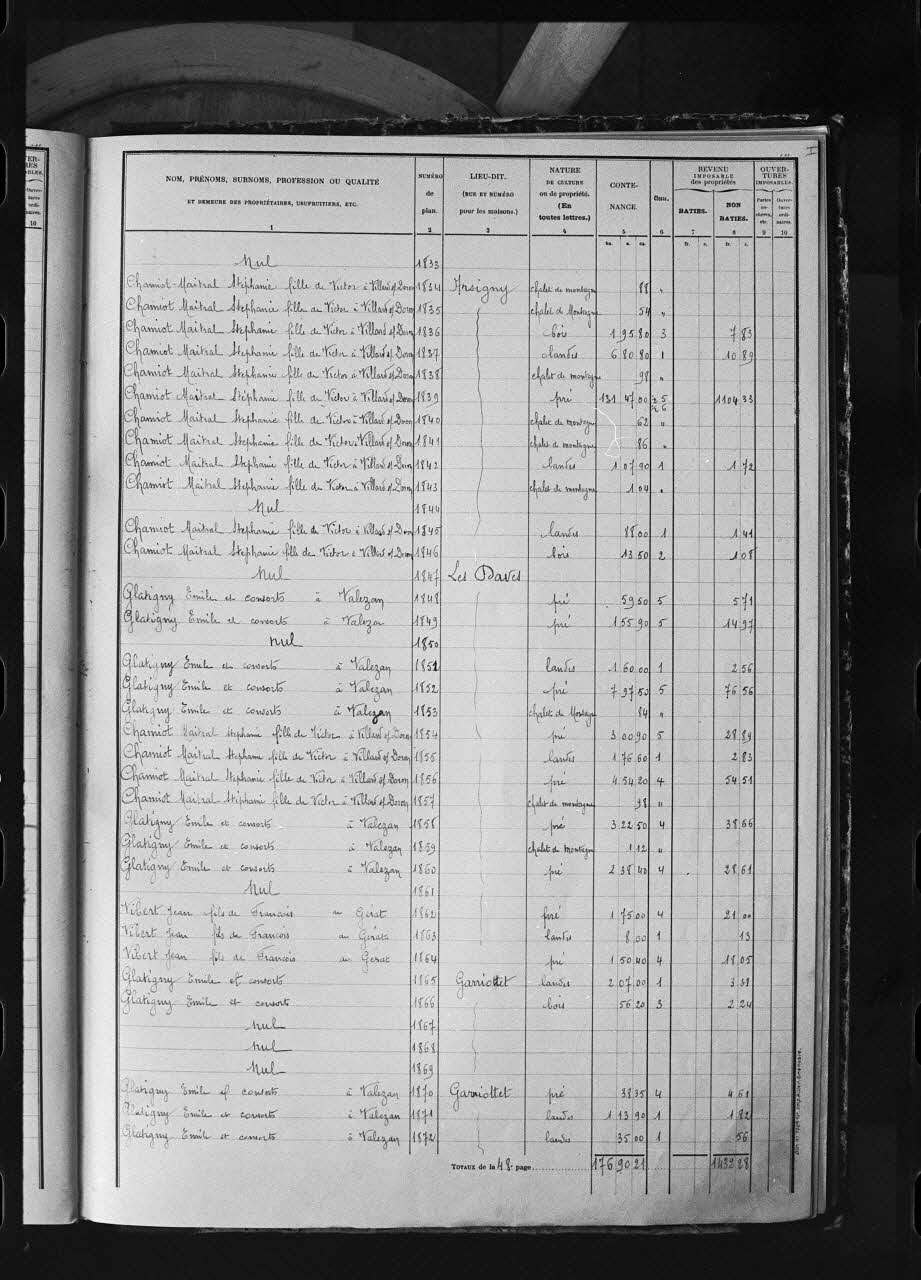 NOM, PRÉNOMS, SURNOMS, PROFESSION OU QUALITÉ ET DEMEURE DES PROPRIÉTAIRES, USUFRUITIERS, ETC. 1 NUMÉRO de plan. 2 LIEU-DIT. (RUE ET NUMÉRO pour les maisons.) 3 NATURE DE CULTURE ou de propriété. (En toutes lettres.) 4 CONTENANCE. 5 Clas. 6 REVENU IMPOSABLE des propriétés BATIES. 7 NON BATIES. 8 OUVERTURES IMPOSABLES. Portes cochères, etc. 9 Ouvertures ordinaires. 10
ha. a. ca. fr. c. fr. c.
Nul 1833
Chamiot-Maitral Stéphanie fille de Victor à Villard s/ Doron 1834 Arsigny chalet de montagne 88 "
Chamiot Maitral Stéphanie fille de Victor à Villard s/ Doron 1835 chalet de Montagne 54 "
Chamiot Maitral Stephanie fille de Victor à Villard s/ Doron 1836 bois 1 95 80 3 7 83
Chamiot Maitral Stephanie fille de Victor à Villard s/ Doron 1837 landes 6 80 80 1 10 89
Chamiot Maitral Stephanie fille de Victor à Villard s/ Doron 1838 chalet de montagne 98 "
Chamiot Maitral Stephanie fille de Victor à Villard s/ Doron 1839 pré 131 47 00 5 6 1104 33
Chamiot Maitral Stephanie fille de Victor à Villard s/ Doron 1840 chalet de montagne 62 "
Chamiot Maitral Stephanie fille de Victor à Villard s/ Doron 1841 chalet de montagne 86 "
Chamiot Maitral Stephanie fille de Victor à Villard s/ Doron 1842 landes 1 07 90 1 1 72
Chamiot Maitral Stephanie fille de Victor à Villard s/ Doron 1843 chalet de montagne 1 04 "
Nul 1844
Chamiot Maitral Stephanie fille de Victor à Villard s/ Doron 1845 landes 88 00 1 1 41
Chamiot Maitral Stephanie fille de Victor à Villard s/ Doron 1846 bois 13 50 2 1 08
Nul 1847 Les Daves
Glatigny Emile et consorts à Valezan 1848 pré 59 50 5 5 71
Glatigny Emile et consorts à Valezan 1849 pré 1 55 90 5 14 97
nul 1850
Glatigny Emile et consorts à Valezan 1851 landes 1 60 00 1 2 56
Glatigny Emile et consorts à Valezan 1852 pré 7 97 50 5 76 56
Glatigny Emile et consorts à Valezan 1853 chalet de Montagne 84 "
Chamiot Maitral stephanie fille de Victor à Villard s/ Doron 1854 pré 3 00 90 5 28 89
Chamiot Maitral Stephanie fille de Victor à Villard s/ Doron 1855 landes 1 76 60 1 2 83
Chamiot Maitral Stephanie fille de Victor à Villard s/ Doron 1856 pré 4 54 20 4 54 51
Chamiot Maitral Stéphanie fille de Victor à Villard s/ Doron 1857 chalet de montagne 98 "
Glatigny Emile et consorts à Valezan 1858 pré 3 22 50 4 38 66
Glatigny Emile et consorts à Valezan 1859 chalet de Montagne 1 12 "
Glatigny Emile et consorts à Valezan 1860 pré 2 38 40 4 28 61
Nul 1861
Vibert Jean fils de Francois au Gérat 1862 pré 1 75 00 4 21 00
Vibert Jean fils de Francois au Gérat 1863 landes 8 00 1 13
Vibert Jean fils de Francois au Gerat 1864 pré 1 50 40 4 18 05
Glatigny Emile et consorts 1865 Garriottet landes 2 07 00 1 3 31
Glatigny Emile et consorts 1866 bois 56 20 3 2 24
nul 1867
nul 1868
Nul 1869
Glatigny Emile et consorts à Valezan 1870 Garriottet pré 38 35 4 4 61
Glatigny Emile et consorts à Valezan 1871 landes 1 13 90 1 1 82
Glatigny Emile et consorts à Valezan 1872 landes 35 00 1 56
TOTAUX de la 48e page 176 90 21 1432 28